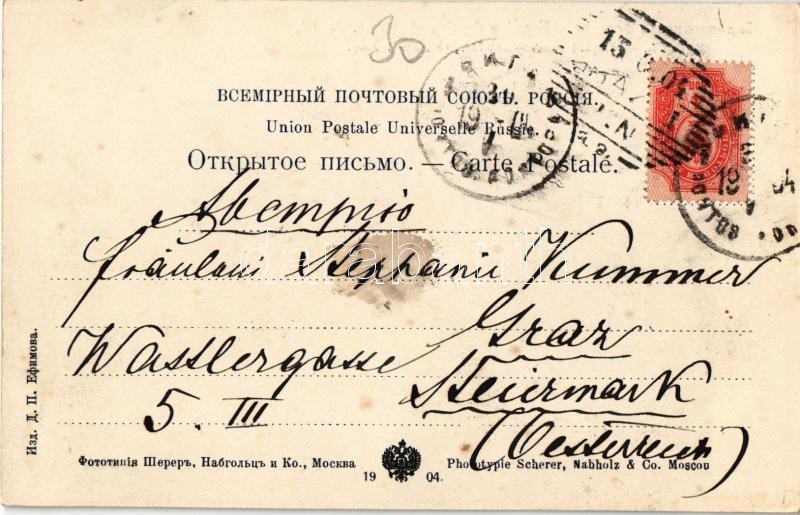 30
ВСЕМІРНЫЙ ПОЧТОВЫЙ СОЮЗЪ. РОССІЯ.
Union Postale Universelle Russie.
Открытое письмо. — Carte Postale.
Австрию
Fräulein Stephanie Kummer
Graz
Wastlergasse
Steiermark
5. III
(Oesterreich)
Изд. Д. П. Ефимова.
Фототипія Шереръ, Набгольцъ и Ко., Москва
Phototypie Scherer, Nabholz & Co. Moscou
19 04.